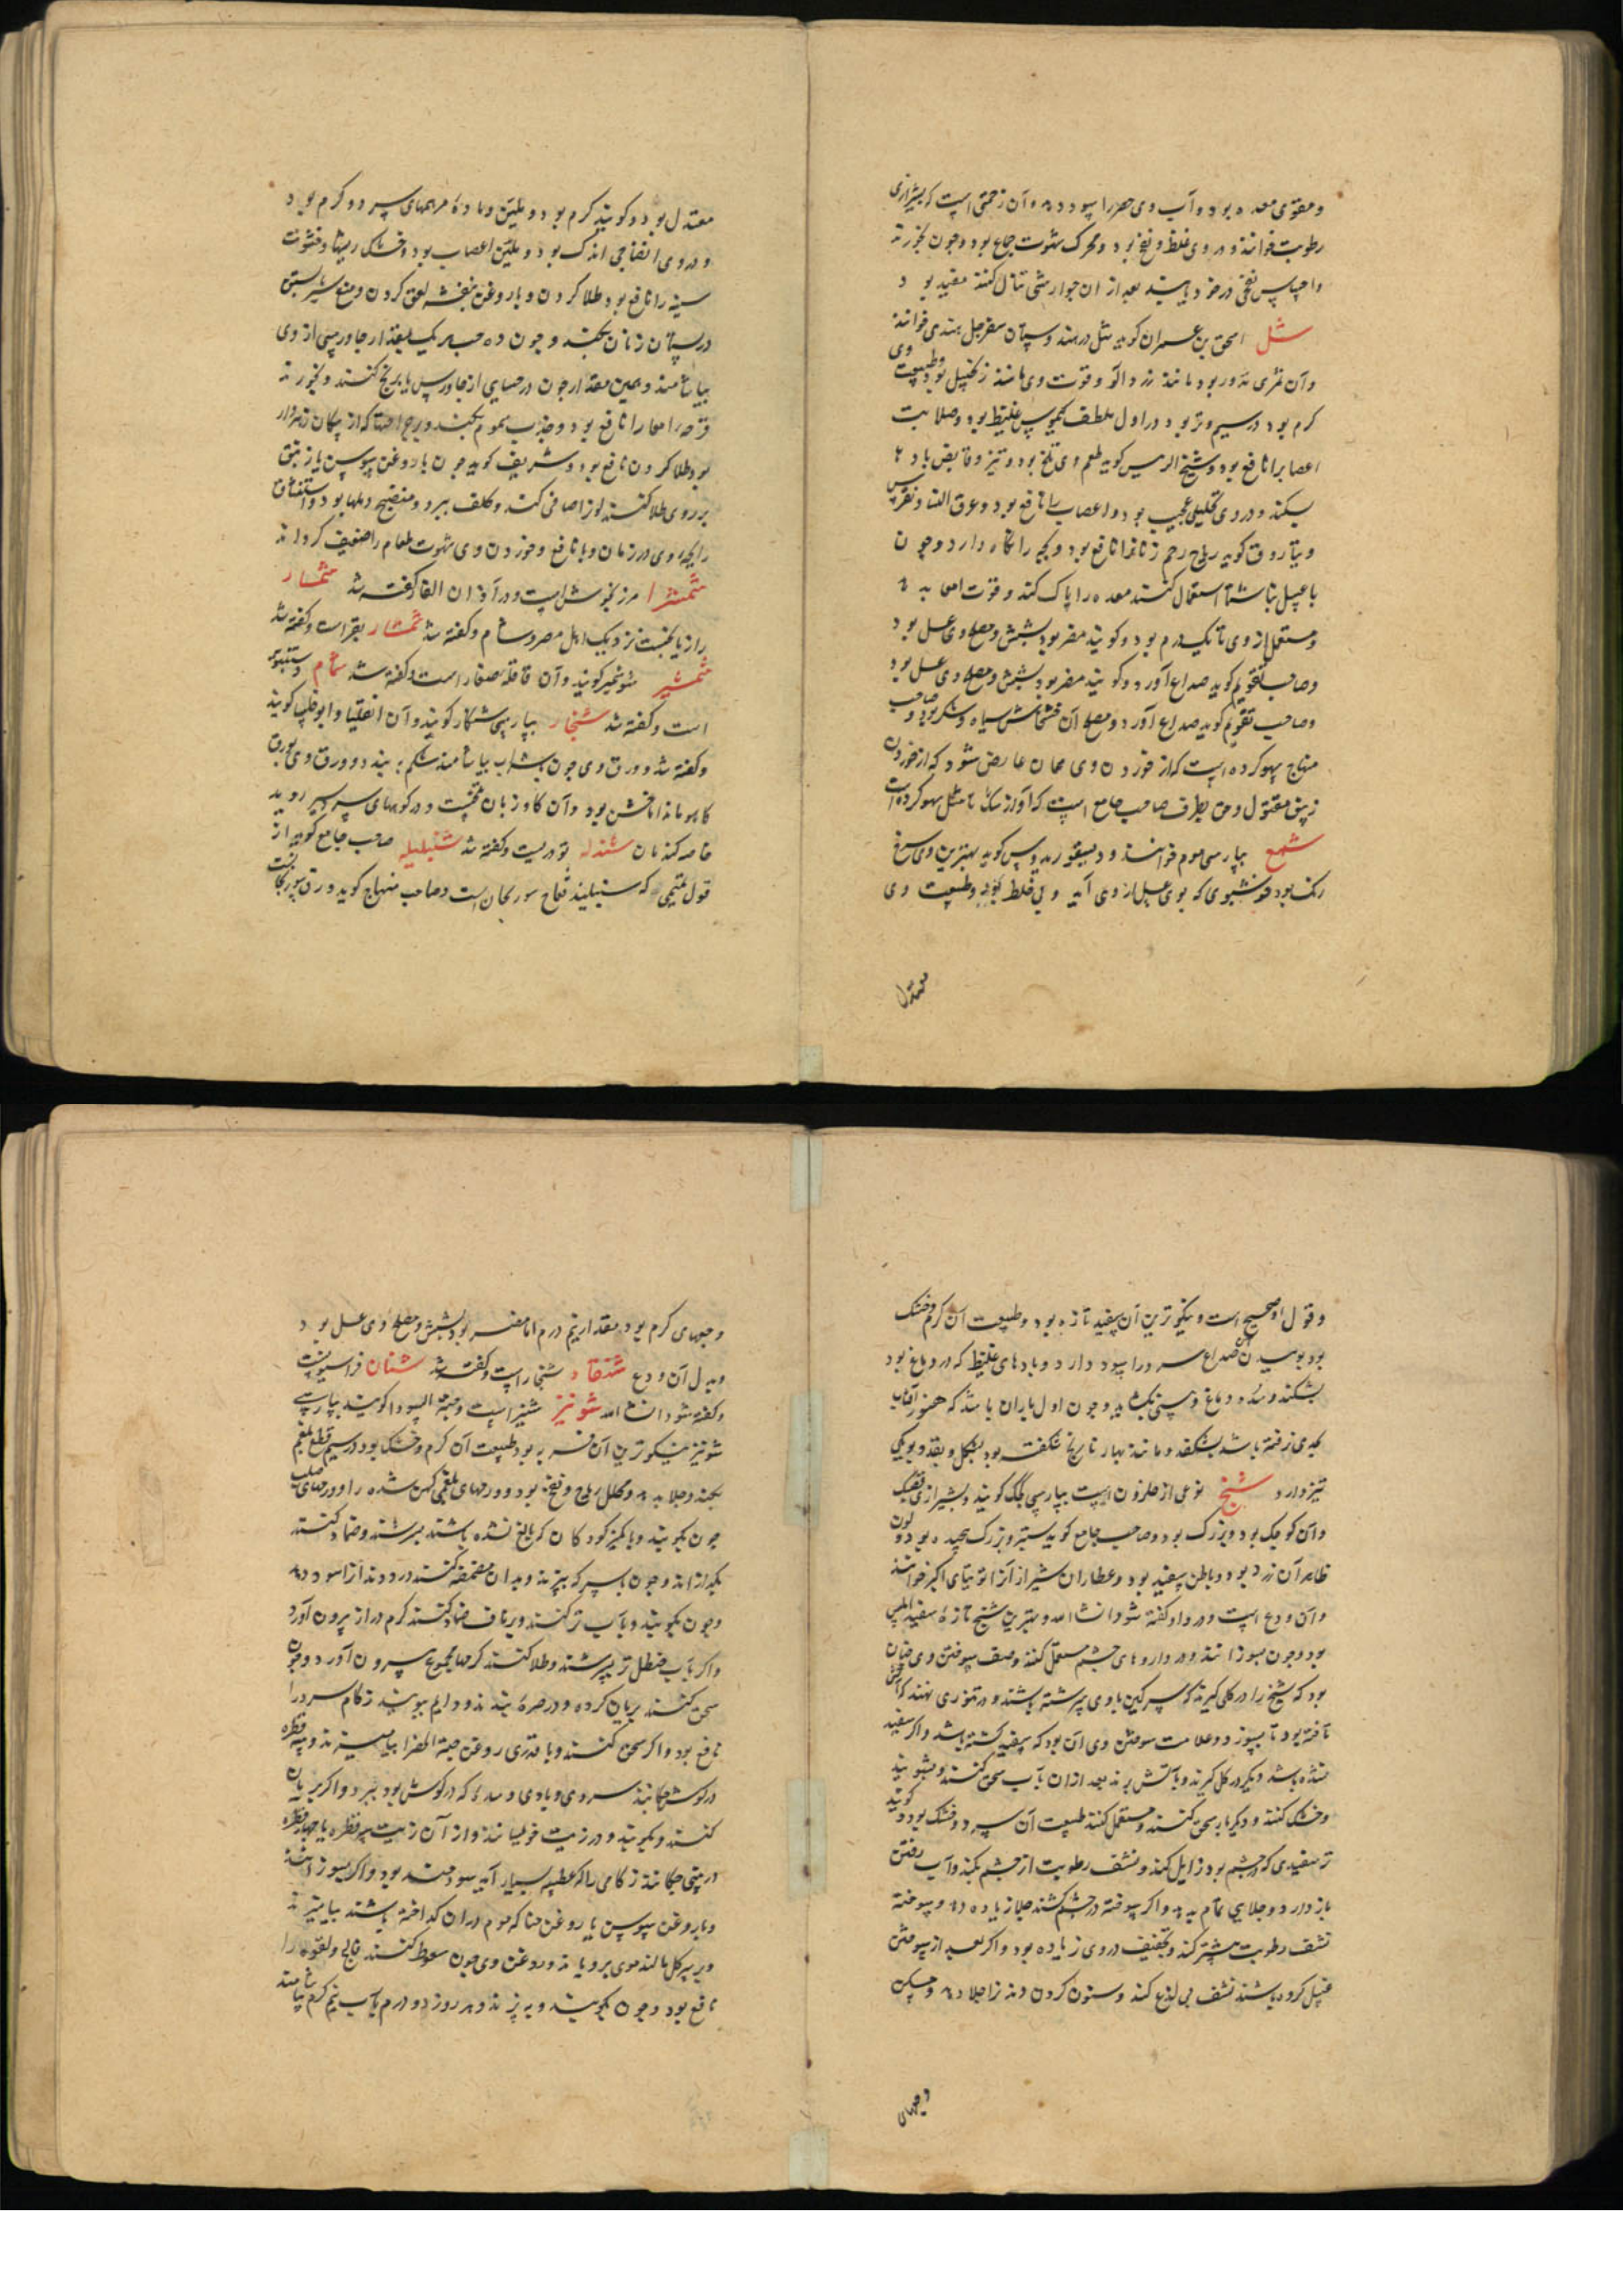 و مقوی معده بود و آب وی حصر را سود دهد و آن زحمتی است که بشیرازی
رطوبت خوانند و در وی غلظ و نفخ بود و محرک شهوت جماع بود و چون بخورند
و احساس نفخی در خود یابند بعد از آن جوارشی تناول کنند مفید بود
شل اسحق بن عمران کوید شل در هند و سپان سفرجل هندی خوانند
و آن ثمری مدور بود مانند زرد آلو و قوت وی مانند زنجبیل بود و طبیعت وی
کرم بود در سیم و تر بود در اول ملطف کیموس غلیظ بود و صلابت
اعصاب را نافع بود و شیخ الرییس کوید طعم وی تلخ بود و تیز و قابض بادها
بشکند و در وی تحلیلی عجیب بود و اعصاب را نافع بود و عرق النسا و نقرس
و بیاروق کوید ریاح رحم زنانرا نافع بود و بچه را نکاه دارد و چون
با عسل ناشتا استعمال کنند معده را پاک کند و قوت امعا بدهد
و مستعمل از وی تا یکدرم بود و کویند مضر بود بشش و مصلح وی عسل بود
وصاحب تقویم کوید صداع آورد و کویند مضر بود بشش و مصلح وی عسل بود
وصاحب تقویم کوید صداع آورد و مصلح آن خشخاش سیاه و شکر بود و صاحب
منهاج سهو کرده است که از خوردن وی همان عارض شود که از خوردن
زیبق مقتول و حق بطرف صاحب جامع است که آواز شک با مثل سهو کرده است
شمع بپارسی موم خوانند و دیسقوریدوس کوید بهترین وی سرخ
رنک بود خوشبوی که بوی عسل از وی آید و بی غلط بود و طبیعت وی
معتدل
معتدل بود و کویند کرم بود و ملین و ماده مرهمهای سرد و کرم بود
و در وی انضاجی اندک بود و ملین اعصاب بود و خشکی ریشها و خشونت
سینه را نافع بود طلا کردن و با روغن بنفشه لعق کردن و منع شیر بستن
در پستان زنان بکند و چون ده حب هر یک بمقدار جاورسی از وی
بیاشامند و همین مقدار چون در حسایی از جاورس یا برنج کنند و بخورند
قرحه امعا را نافع بود و جذب سموم بکند و بر جراحتها که از پیکان زهردار
بود طلا کردن نافع بود و شریف کوید چون با روغن سوسن یا زنبق
بر روی طلا کنند لون را صافی کند و کلف ببرد و منضج دملها بود و استنشاق
رایحه وی در زمان وبا نافع و خوردن وی شهوت طعام را ضعیف کرداند
شمشرا مرزنجوش است و در آذان الفار کفته شد شمار
رازیانجست نزدیک اهل مصر و شام و کفته شد شمشار بقراست و کفته شد
شمشیر شوشمیر کویند و آن قاقله صغار است و کفته شد شمام دستنبویه
است و کفته شد شنجار بپارسی شنکار کویند و آن انقلیا و ابو خلسا کویند
و کفته شد و ورق وی چون بشراب بیاشامند شکم ببندد و ورق وی بورق
کاهو ماند اما خشن بود و آن کاوزبان تلخست و در کوههای سردسیر روید
خاصه کندمان شندله تودریست و کفته شد شنبلیله صاحب جامع کوید از
قول تمیمی که سنبلیلد فقاح سورنجان است و صاحب منهاج کوید ورق سورنجانست
و قول او صحیح است و نیکوترین آن سفید تازه بود و طبیعت آن کرم و خشک
بود بوییدن آن صداع سرد را سود دارد و بادهای غلیظ که در دماغ بود
بشکند و سده دماغ و بینی بکشاید و چون اول باران باشد که هنوز آفتاب
بجدی نرفته باشد بشکفد و مانند بهار نارنج شکفته بود بشکل و بقد و بویکی
تیز دارد شنج نوعی از حلزون است بپارسی جک کویند و بشیرازی فسک
و آن کوچک بود و بزرک بود و صاحب جامع کوید سبتر و بزرک پیچیده بود و لون
ظاهر آن زرد بود و باطن سفید بود و عطاران شیراز آنرا توتیای اکبر خوانند
و آن ودع است و در واو کفته شود انشا الله و بهترین شنج تازه سفید املس
بود و چون بسوزانند و در داروهای چشم مستعمل کنند وصف سوختن وی چنان
بود که شنج را در کل کیرند که سرکین با وی سرشته باشند و در تنوری نهند که آتش
تافته بود تا بسوزد و علامت سوختن وی آن بود که سفید کشته باشد و اکر سفید
نشده باشد دیکر در کل کیرند و بآتش برند بعد از آن بآب سحق کنند و بشویند
و خشک کنند و دیکر بار سحق کنند و مستعمل کنند طبیعت آن سرد و خشک بود و کویند
تر سفیدی که در چشم بود زایل کند و نشف رطوبت از چشم بکند و آب رفتن
باز دارد و جلایی تمام بدهد و اکر سوخته در چشم کشند جلا زیاده دهد و سوخته
نشف رطوبت بیشتر کند و تجفیف در وی زیاده بود و اکر بعد از سوختن
غسل کرده باشند نشف بی لذع کند و سنون کردن دندانرا جلا دهد و مسکن
وجهای
وجبهای کرم بود مقدار نیم درم اما مضر بود بشش و مصلح وی عسل بود
و بدل آن ودع شنقار شنجار است و کفته شد شنان فراسیونست
و کفته شود انشا الله شونیز شینیز است و حبة السودا کویند بپارسی
شونیز نیکوترین آن فربه بود طبیعت آن کرم و خشک بود در سیم قطع بلغم
بکند و جلا بدهد و محلل ریاح و نفخ بود و ورمهای بلغمی کهن شده را و ورمهای صلب
چون بکوبند و با کمیز کودکان که بالغ نشده باشند بسرشند و ضماد کنند
بکدازاند و چون با سرکه بپزند و بدان مضمضه کنند درد دندانرا سود دهد
و چون بکوبند و بآب تر کنند و بر ناف ضماد کنند کرم دراز بیرون آورد
و اکر بآب حنظل تر بسرشند و طلا کنند کرمها مجموع بیرون آورد و چون
سحق کنند بریان کرده و در صره بندند و دایم ببویند زکام سرد را
نافع بود و اکر سحق کنند و با قدری روغن حبة الخضرا بیامیزند و سه قطره
در کوش چکانند سردی و بادی و سده که در کوش بود ببرد و اکر بریان
کنند و بکوبند و در زیت خویسانند و از آن زیت سه قطره یا چهار قطره
در بینی چکانند زکامی را که عطسه بسیار آید سودمند بود و اکر بسوزانند
و با روغن سوسن یا روغن حنا که موم در آن کداخته باشند بیامیزند
و بر سر کل مالند موی برویاند و روغن وی چون سعوط کنند فالج و لقوه را
نافع بود و چون بکوبند و بپزند و هر روز دو درم بآب نیم کرم بیاشامند